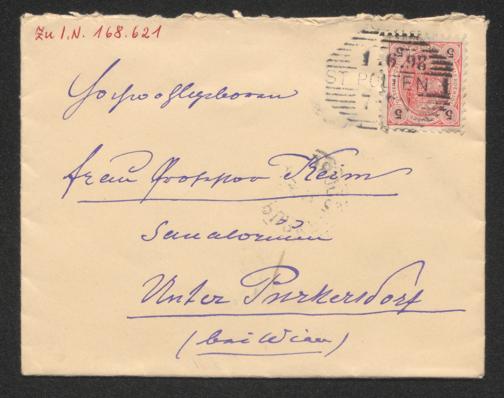 Zu I.N. 168.621
1 .6.98
ST. POELTEN 1
5
5
5
5
Hochwohlgeboren
Frau Professor Keim
Sanatorium
Unter Purkersdorf
(bei Wien)